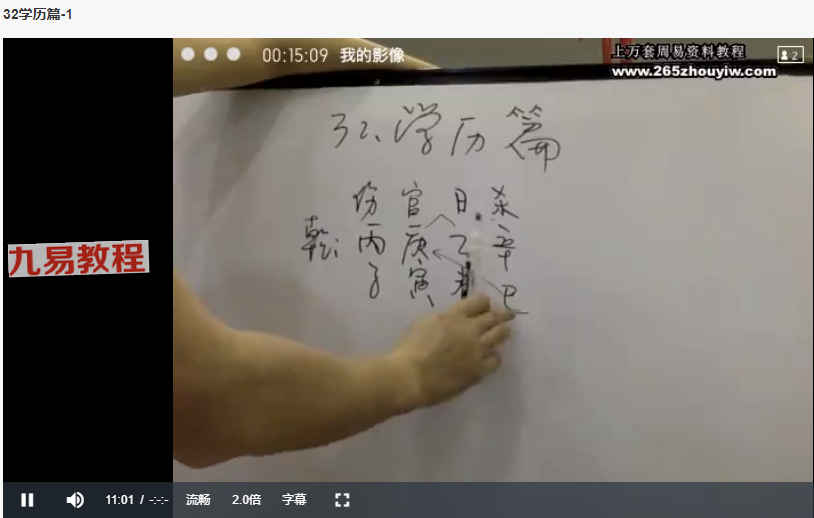 32学历篇-1
00:15:09 我的影像
上万套周易资料教程
www.265zhouyiw.com
2
32、学历篇
伤 官 日 杀
乾: 丙 庚 乙 辛
子 寅 巳
九易教程
11:01 / -:-:- 流畅 2.0倍 字幕